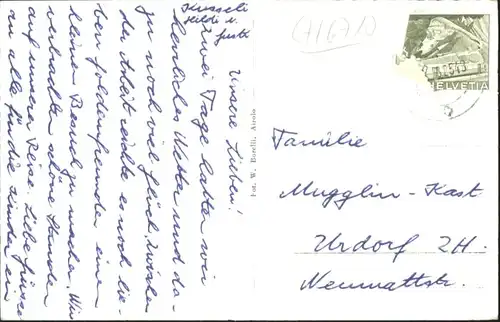 Unsere Lieben!
Zwei Tage hatten wir
herrliches Wetter und da-
zu noch viel Glück. Zwischen
der Arbeit reichte es noch lie-
ben Goldenfreunden einen
kleinen Besuch zu machen. Wir
verbrachten schöne Stunden
auf unserer Reise. Liebe Grüsse
an alle für die Kinder ein
Küsseli
Heidi u.
Phot. W. Borelli, Airolo
(71670)
HELVETIA
Familie
Mugglin-Kast
Urdorf ZH.
Neumattstr.